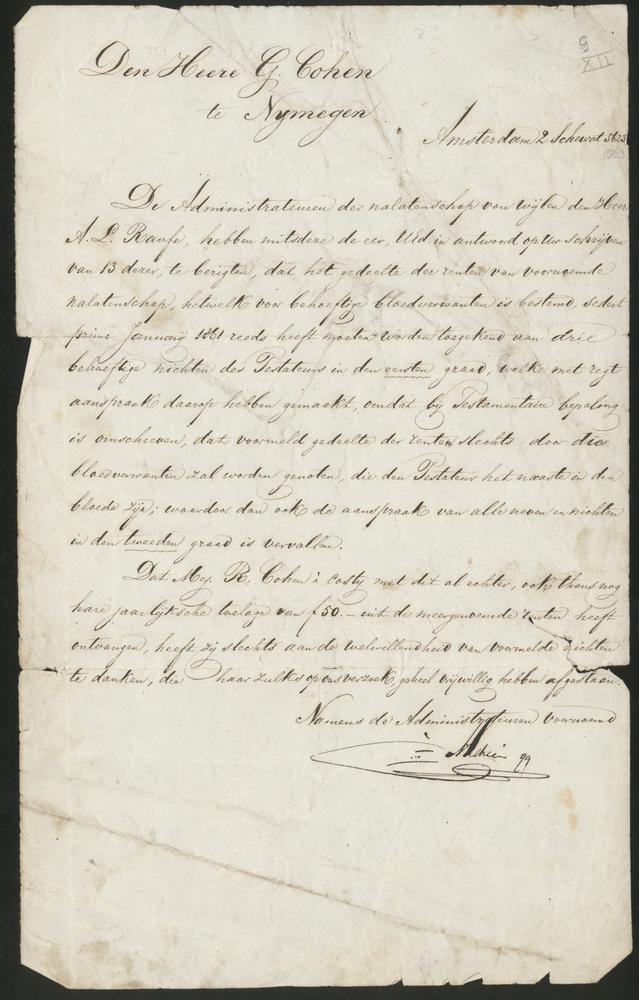 9
XII
Den Heere G. Cohen
te Nymegen
Amsterdam 2 Schewat 5623
1863
De Administrateuren der nalatenschap van wijlen den Heer
A. L. hebben mitsdeze de eer, UEd. in antwoord op Uw schrijven
van 13 dezer, te berigten, dat het gedeelte der renten van voornoemde
nalatenschap, hetwelk voor behoeftige bloedverwanten is bestemd, sedert
primo Januarij 1861 reeds heeft moeten worden toegekend aan drie
behoeftige nichten des Testateurs in den eersten graad, welke met regt
aanspraak daarop hebben gemaakt, omdat bij Testamentaire bepaling
is omschreven, dat voormeld gedeelte der renten slechts door die
bloedverwanten zal worden genoten, die den Testateur het naaste in den
bloede zijn; waardoor dan ook de aanspraak van alle neven en nichten
in den tweeden graad is vervallen.
Dat Mej. R. Cohen à costy met dit al echter, ook thans nog
hare jaarlijksche toelage van f 50.— uit de meergenoemde renten heeft
ontvangen, heeft zij slechts aan de welwillendheid van voormelde nichten
te danken, die haar zulks op ons verzoek geheel vrijwillig hebben afgestaan.
Namens de Administrateuren voornoemd